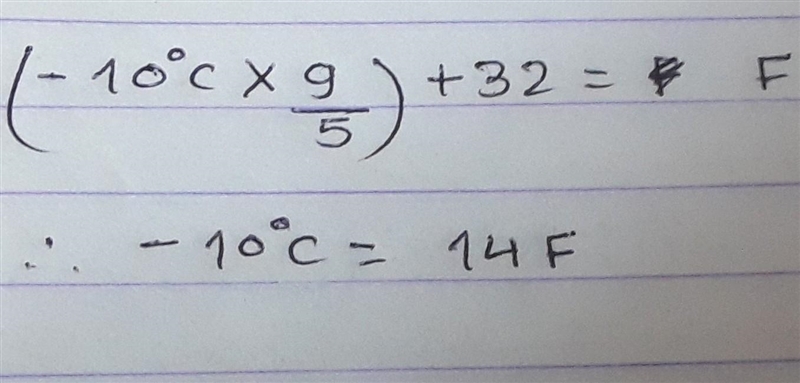 (-10°C × 9/5) + 32 = F
∴ -10°C = 14 F